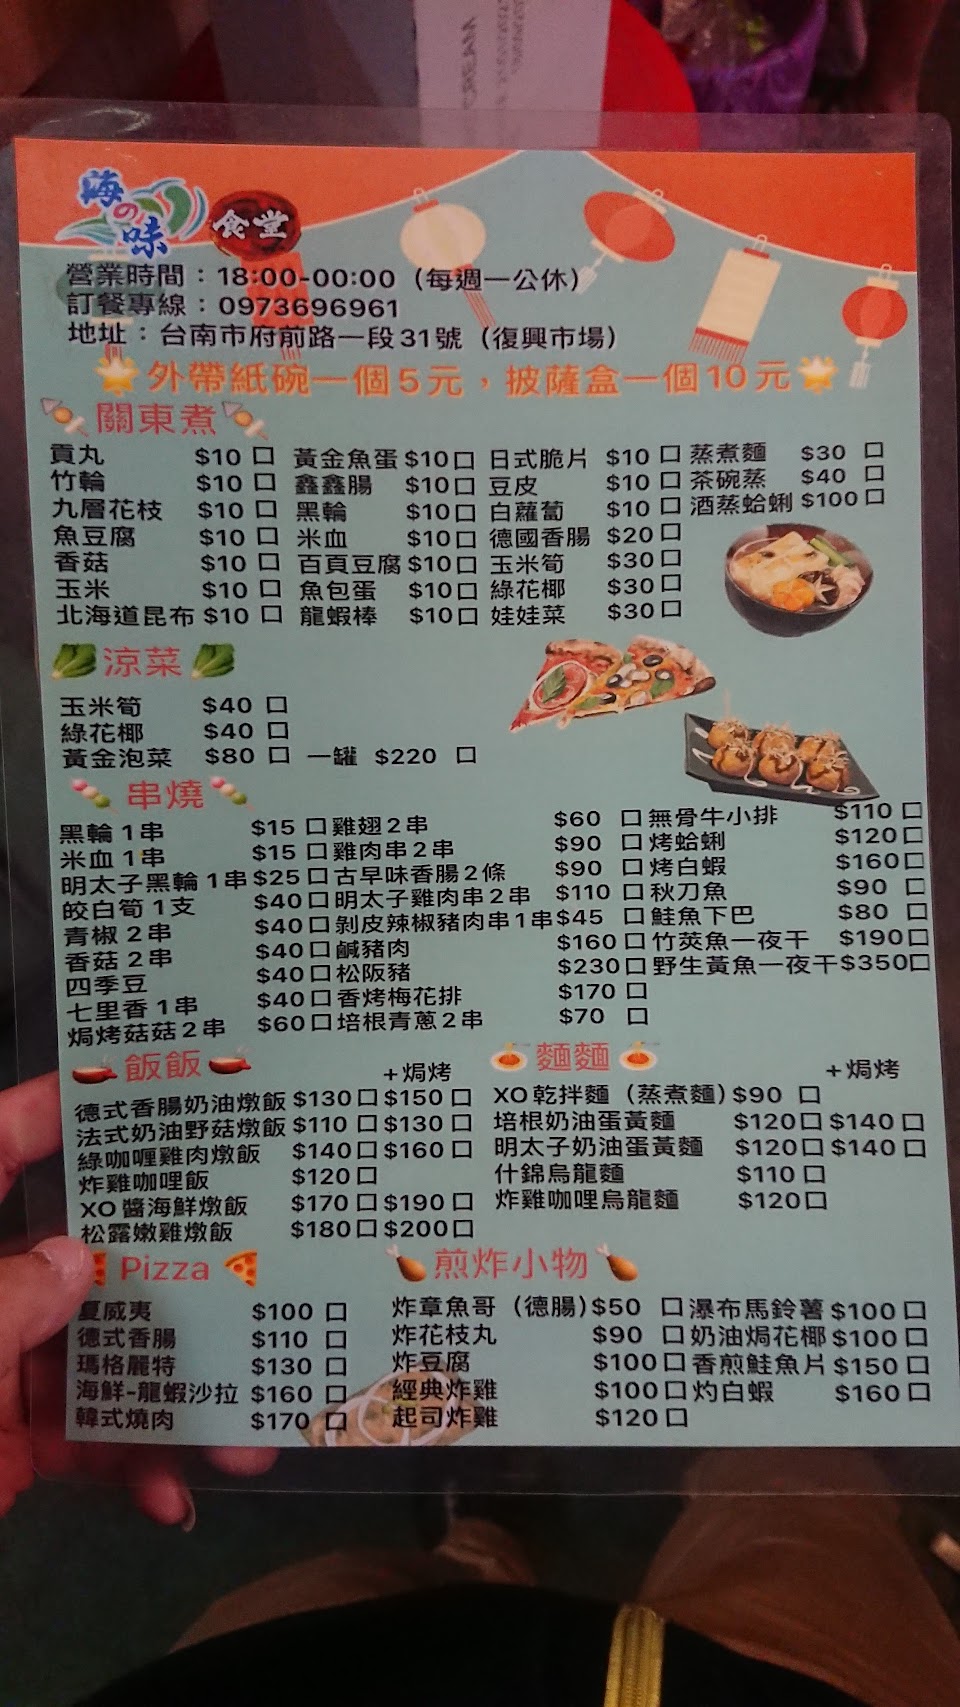 海の味 食堂
營業時間：18:00-00:00（每週一公休）
訂餐專線：0973696961
地址：台南市府前路一段31號（復興市場）
外帶紙碗一個5元，披薩盒一個10元
關東煮
貢丸 $10 口 黃金魚蛋 $10 口 日式脆片 $10 口 蒸煮麵 $30 口
竹輪 $10 口 鑫鑫腸 $10 口 豆皮 $10 口 茶碗蒸 $40 口
九層花枝 $10 口 黑輪 $10 口 白蘿蔔 $10 口 酒蒸蛤蜊 $100 口
魚豆腐 $10 口 米血 $10 口 德國香腸 $20 口
香菇 $10 口 百頁豆腐 $10 口 玉米筍 $30 口
玉米 $10 口 魚包蛋 $10 口 綠花椰 $30 口
北海道昆布 $10 口 龍蝦棒 $10 口 娃娃菜 $30 口
涼菜
玉米筍 $40 口
綠花椰 $40 口
黃金泡菜 $80 口 一罐 $220 口
串燒
黑輪1串 $15 口 雞翅2串 $60 口 無骨牛小排 $110 口
米血1串 $15 口 雞肉串2串 $90 口 烤蛤蜊 $120 口
明太子黑輪1串 $25 口 古早味香腸2條 $90 口 烤白蝦 $160 口
皎白筍1支 $40 口 明太子雞肉串2串 $110 口 秋刀魚 $90 口
青椒2串 $40 口 剝皮辣椒豬肉串1串 $45 口 鮭魚下巴 $80 口
香菇2串 $40 口 鹹豬肉 $160 口 竹莢魚一夜干 $190 口
四季豆 $40 口 松阪豬 $230 口 野生黃魚一夜干 $350 口
七里香1串 $40 口 香烤梅花排 $170 口
焗烤菇菇2串 $60 口 培根青蔥2串 $70 口
飯飯 +焗烤
德式香腸奶油燉飯 $130 口 $150 口
法式奶油野菇燉飯 $110 口 $130 口
綠咖喱雞肉燉飯 $140 口 $160 口
炸雞咖哩飯 $120 口
XO醬海鮮燉飯 $170 口 $190 口
松露嫩雞燉飯 $180 口 $200 口
麵麵 +焗烤
XO乾拌麵（蒸煮麵）$90 口
培根奶油蛋黃麵 $120 口 $140 口
明太子奶油蛋黃麵 $120 口 $140 口
什錦烏龍麵 $110 口
炸雞咖哩烏龍麵 $120 口
Pizza
夏威夷 $100 口
德式香腸 $110 口
瑪格麗特 $130 口
海鮮-龍蝦沙拉 $160 口
韓式燒肉 $170 口
煎炸小物
炸章魚哥（德腸）$50 口 瀑布馬鈴薯 $100 口
炸花枝丸 $90 口 奶油焗花椰 $100 口
炸豆腐 $100 口 香煎鮭魚片 $150 口
經典炸雞 $100 口 灼白蝦 $160 口
起司炸雞 $120 口